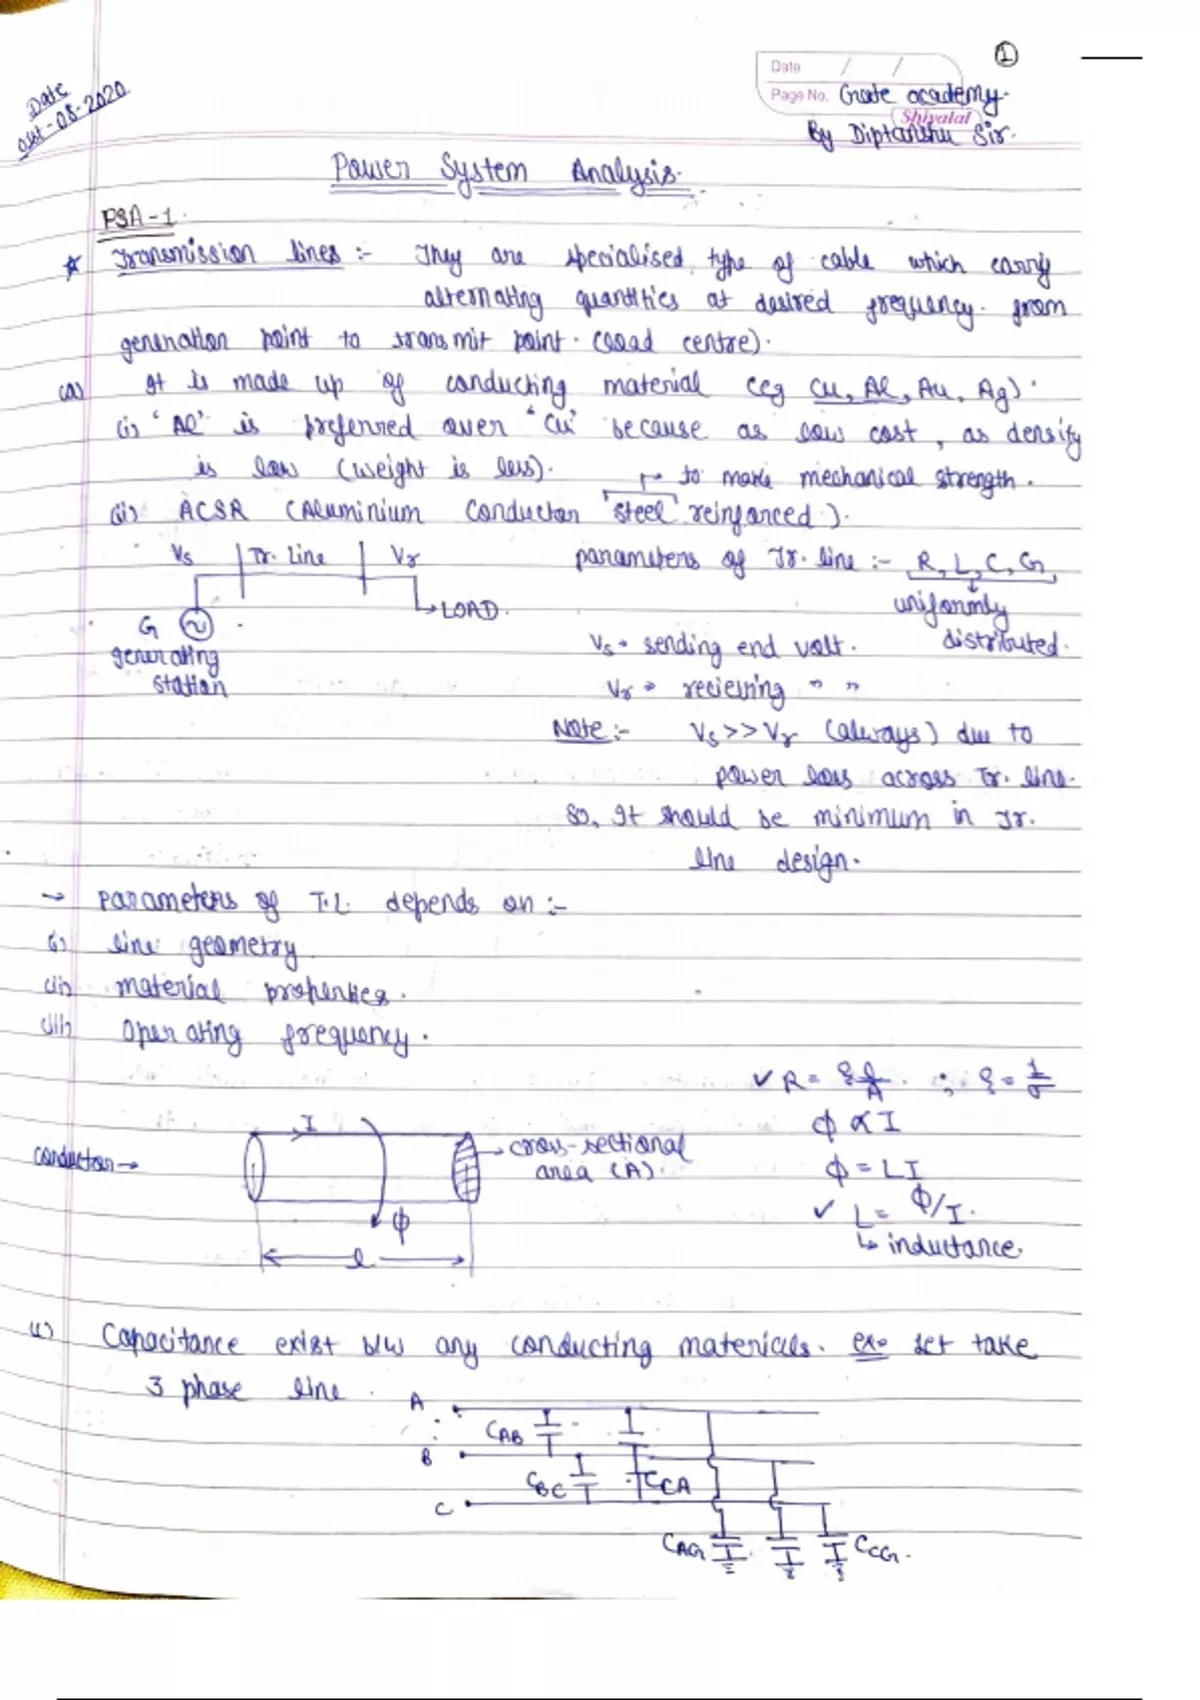 ①
Date / /
Page No.
Gate academy.
Shivalal
By Diptanshu Sir.
Date
01st-08-2020
Power System Analysis.
PSA-1.
☆ Transmission lines :- They are specialised type of cable which carry
alternating quantities at desired frequency. from
generation point to transmit point. (load centre).
(a) It is made up of conducting material (eg Cu, Al, Au, Ag).
(i) 'Al' is preferred over 'Cu' because as low cost, as density
is low (weight is less).
→ to make mechanical strength.
(ii) ACSR (Aluminium Conductor 'steel' reinforced).
Vs Tr. Line Vr
LOAD.
G
generating
station
parameters of Tr. line :- R, L, C, G,
uniformly
distributed.
Vs → sending end volt.
Vr → recieving " "
Note :- Vs >> Vr (always) due to
power loss across Tr. line.
So, It should be minimum in Tr.
line design.
→ Parameters of T.L. depends on :-
(i) line geometry.
(ii) material properties.
(iii) Operating frequency.
✓ R = ρ l/A . ; ρ = 1/σ
ϕ ∝ I
ϕ = LI
✓ L = ϕ/I.
↳ inductance.
conductor →
I
→ cross-sectional
area (A).
ϕ
l
Capacitance exist b/w any conducting materials. ex→ let take
3 phase line.
A
CAB
B
CBC
CCA
C
CAG
CCG.